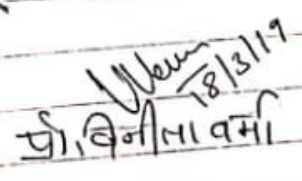 18/3/19
प्रो. विनीता वर्मा